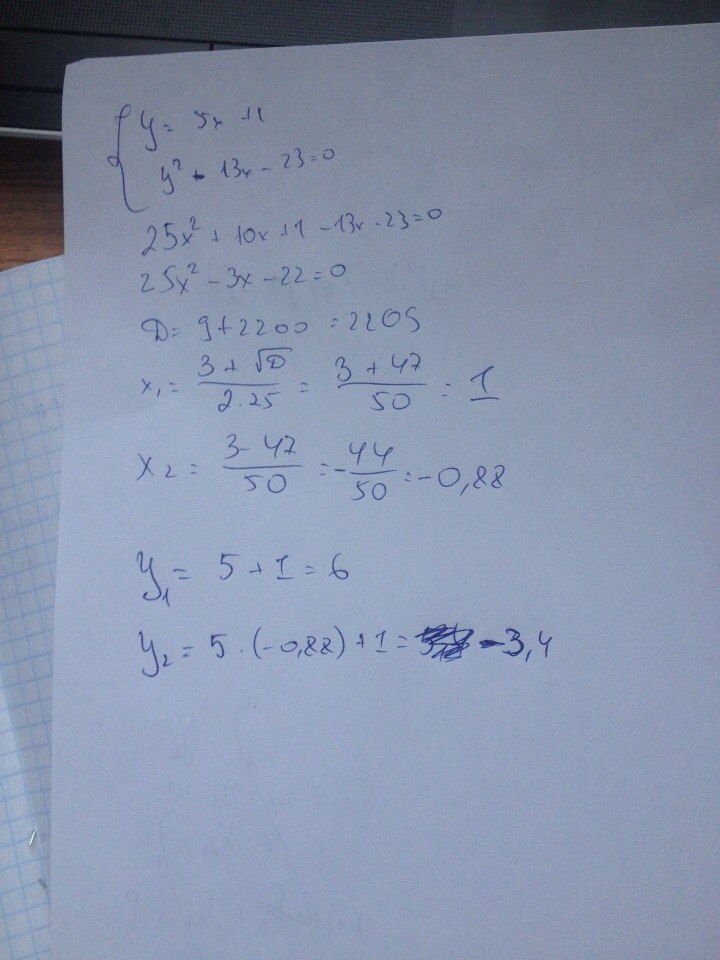 { y = 5x + 1
y² - 13x - 23 = 0
25x² + 10x + 1 - 13x - 23 = 0
25x² - 3x - 22 = 0
D = 9 + 2200 = 2209
x₁ = (3 + √D)/(2·25) = (3 + 47)/50 = 1
x₂ = (3 - 47)/50 = -44/50 = -0,88
y₁ = 5 + 1 = 6
y₂ = 5·(-0,88) + 1 = -3,4